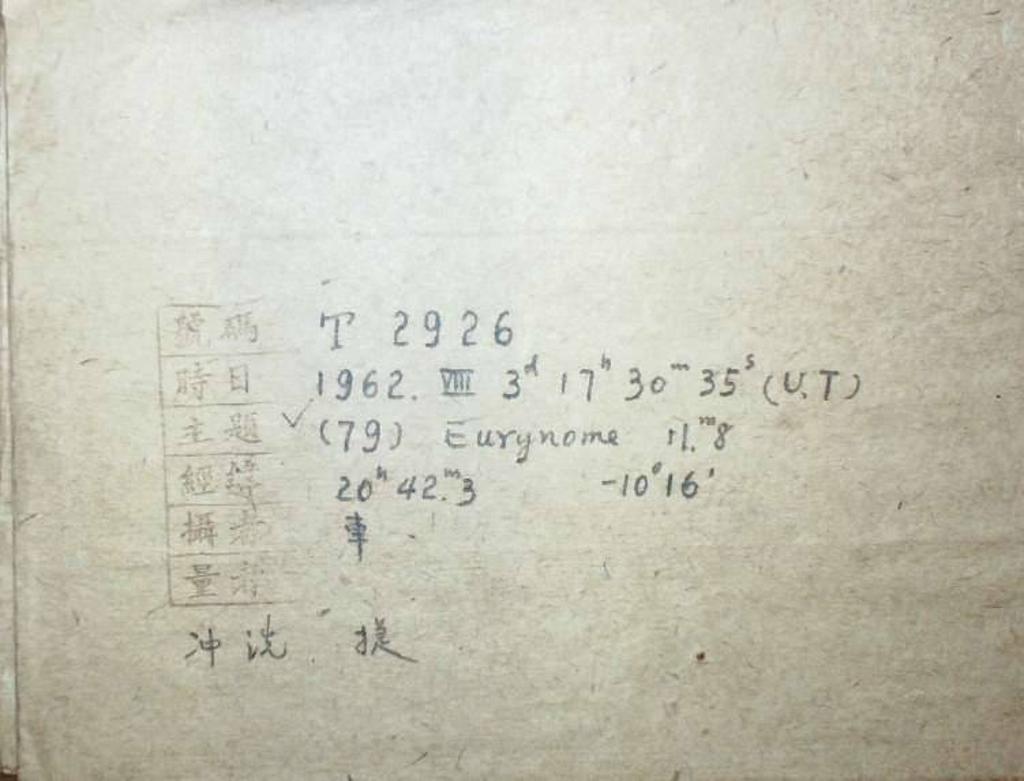 號碼 T 2926
時日 1962. Ⅷ 3ᵈ 17ʰ 30ᵐ 35ˢ (U.T)
主題 ✓ (79) Eurynome 11.ᵐ8
經緯 20ʰ 42.ᵐ3 -10°16'
攝者 車
量者
冲洗 提